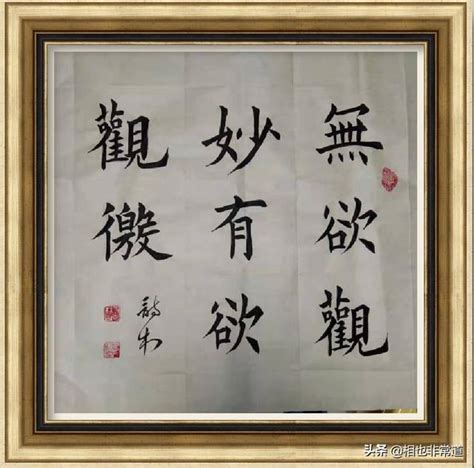 無欲觀
妙有欲
觀徼
头条 @相也非常道